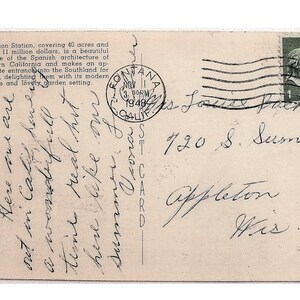 on Station, covering 40 acres and
11 million dollars, is a beautiful
of the Spanish architecture of
rn California and makes an ap-
te entrance to the Southland for
, delighting them with its modern
s and lovely garden setting.
Here we are
out in Calif.
a wonderful
time real hot
here
summer.
FONTANA
NOV
PM
1948
CALIF.
POST CARD
Louise
720 S. Sum
Appleton
Wis